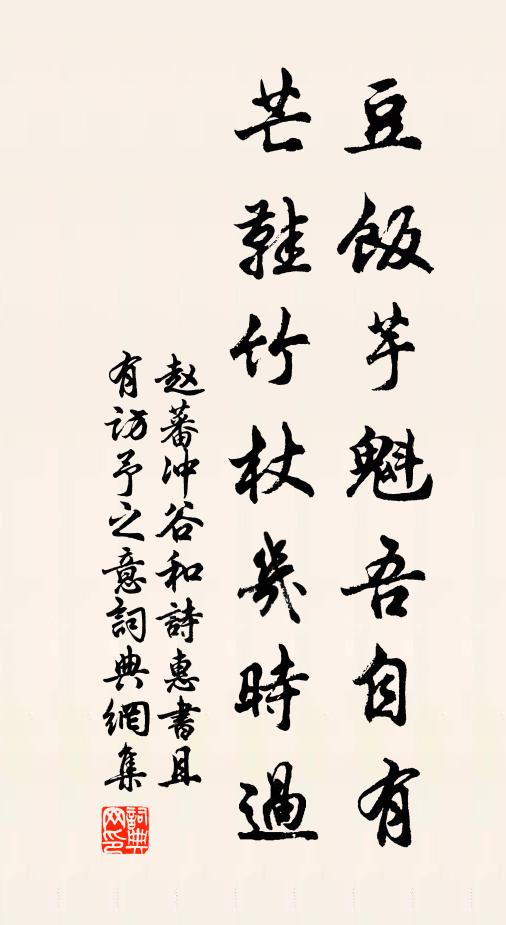 豆飯芋魁吾自有
芒鞋竹杖幾時過
赵蕃冲谷和詩惠書且
有訪予之意詞典網集
詞典
网印